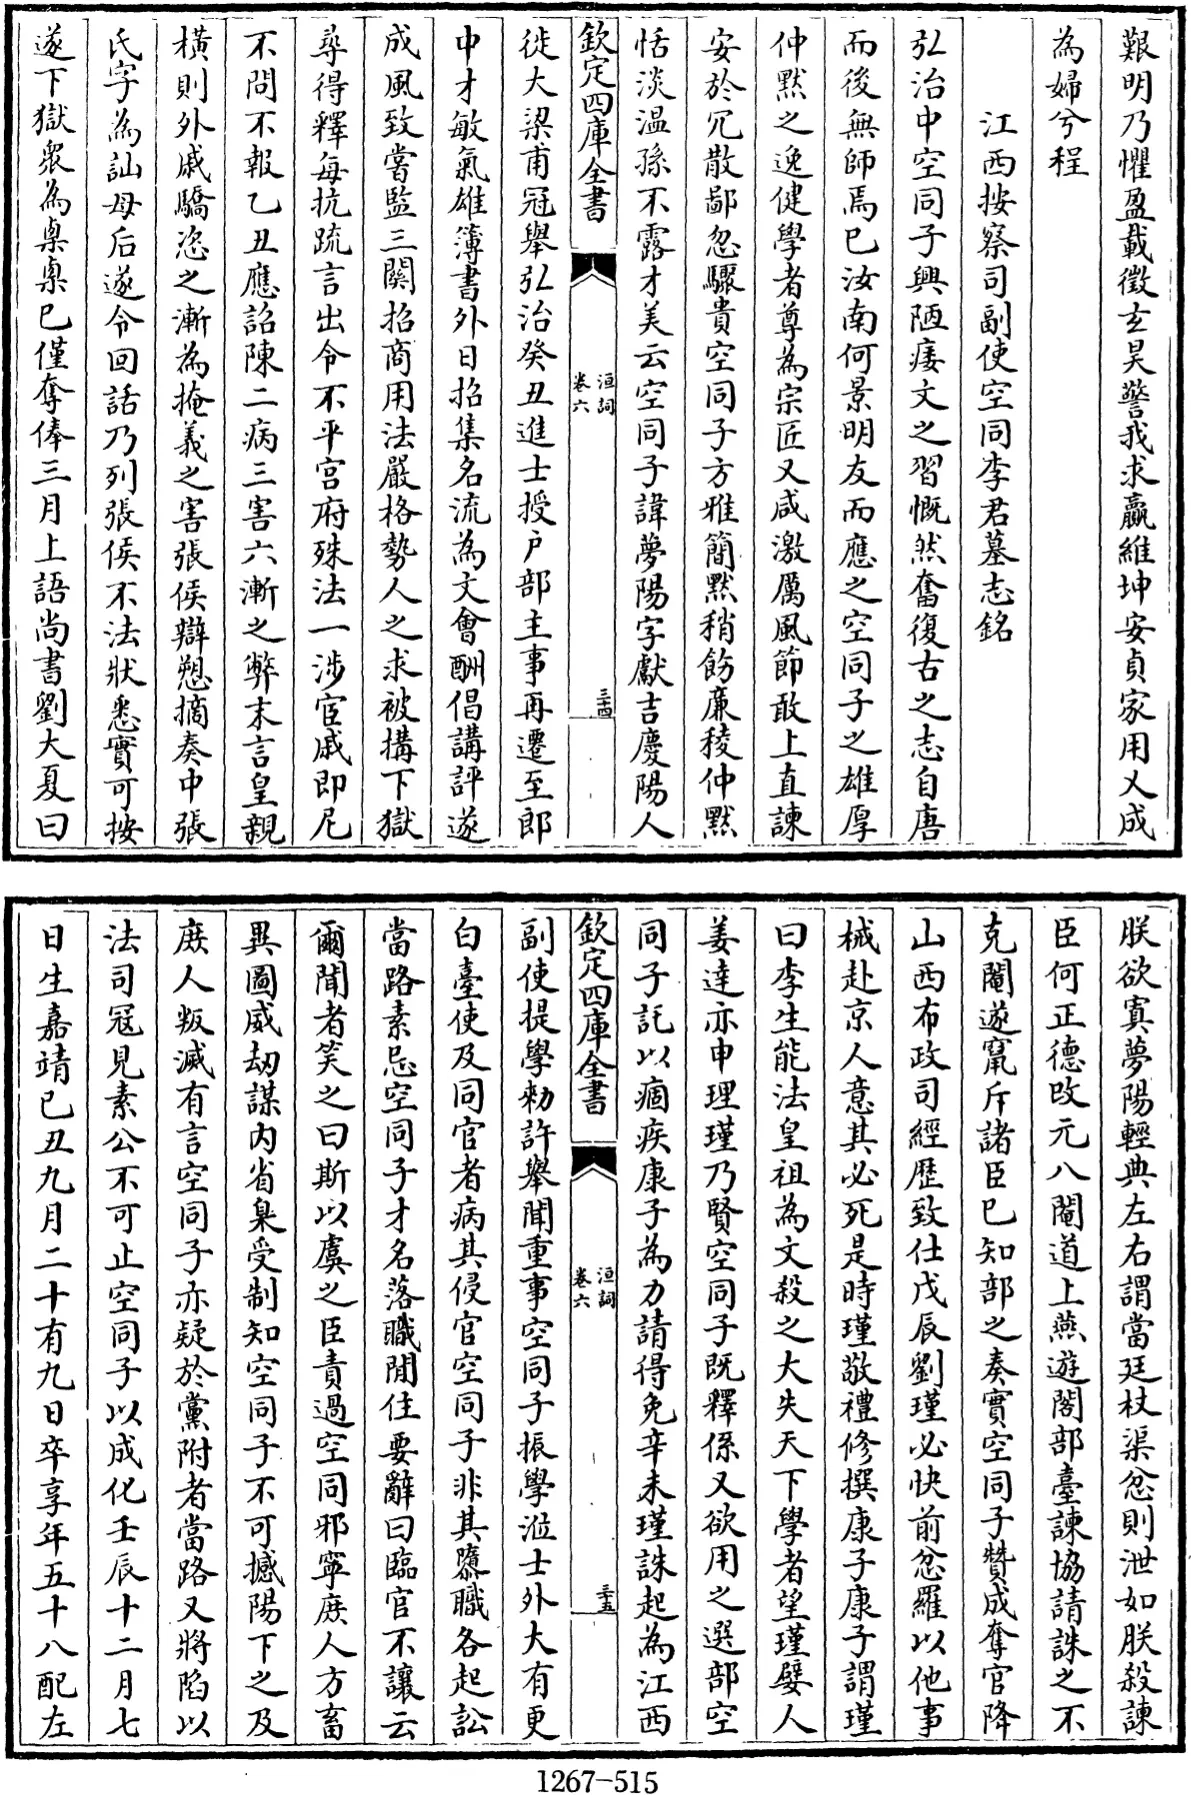 艱明乃懼盈載徵玄昊警我求羸維坤安貞家用乂成
為婦兮程
江西按察司副使空同李君墓志銘
弘治中空同子興陋痿文之習慨然奮復古之志自唐
而後無師焉已汝南何景明友而應之空同子之雄厚
仲黙之逸健學者尊為宗匠又咸激厲風節敢上直諫
安於冗散鄙忽驟貴空同子方雅簡黙稍飭廉稜仲黙
恬淡溫孫不露才美云空同子諱夢陽字獻吉慶陽人
欽定四庫全書
洹詞
卷六
三十四
徙大梁甫冠舉弘治癸丑進士授户部主事再遷至郎
中才敏氣雄簿書外日招集名流為文會酬倡講評遂
成風致嘗監三關招商用法嚴格勢人之求被搆下獄
尋得釋每抗疏言出令不平宫府殊法一涉宦戚即尼
不問不報乙丑應詔陳二病三害六漸之弊末言皇親
橫則外戚驕恣之漸為掩義之害張侯辯愬摘奏中張
氏字為訕母后遂令回話乃列張侯不法狀悉實可按
遂下獄衆為臬臬已僅奪俸三月上語尚書劉大夏曰
朕欲寘夢陽輕典左右謂當廷杖渠忿則泄如朕殺諫
臣何正德改元八閹道上燕遊閣部臺諫協請誅之不
克閹遂竄斥諸臣已知部之奏實空同子贊成奪官降
山西布政司經歷致仕戊辰劉瑾必快前忿羅以他事
械赴京人意其必死是時瑾敬禮修撰康子康子謂瑾
曰李生能法皇祖為文殺之大失天下學者望瑾嬖人
姜達亦申理瑾乃賢空同子既釋係又欲用之選部空
同子託以痼疾康子為力請得免辛未瑾誅起為江西
欽定四庫全書
洹詞
卷六
三十五
副使提學勅許舉聞重事空同子振學涖士外大有更
白臺使及同官者病其侵官空同子非其隳職各起訟
當路素忌空同子才名落職閒住要辭曰臨官不讓云
爾聞者笑之曰斯以虞之臣責過空同邪寧庶人方畜
異圖威劫謀内省臬受制知空同子不可撼陽下之及
庶人叛滅有言空同子亦疑於黨附者當路又將陷以
法司冦見素公不可止空同子以成化壬辰十二月七
日生嘉靖已丑九月二十有九日卒享年五十八配左
1267-515